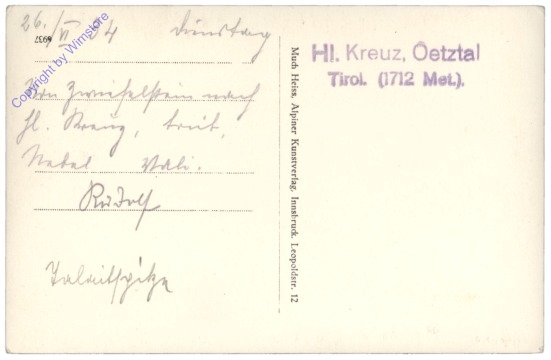 26. VI 34 Dienstag
4937
Copyright by Wimstore
Von Zwieselstein nach
Hl. Kreuz,
Nebel
Rudolf
Talleitspitze
Much Heiss, Alpiner Kunstverlag, Innsbruck, Leopoldstr. 12
Hl. Kreuz, Oetztal
Tirol. (1712 Met.).